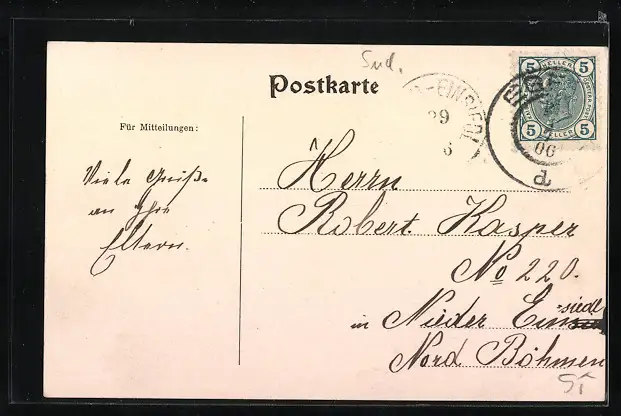 Süd.
Postkarte
Für Mitteilungen:
Viele Grüße
an Ihre
Eltern.
Herrn
Robert Kasper
No 220.
in Nieder Einsiedl
Nord Böhmen
5 HELLER 5
5 HELLER 5
-EINSIEDL
29
6
06
d